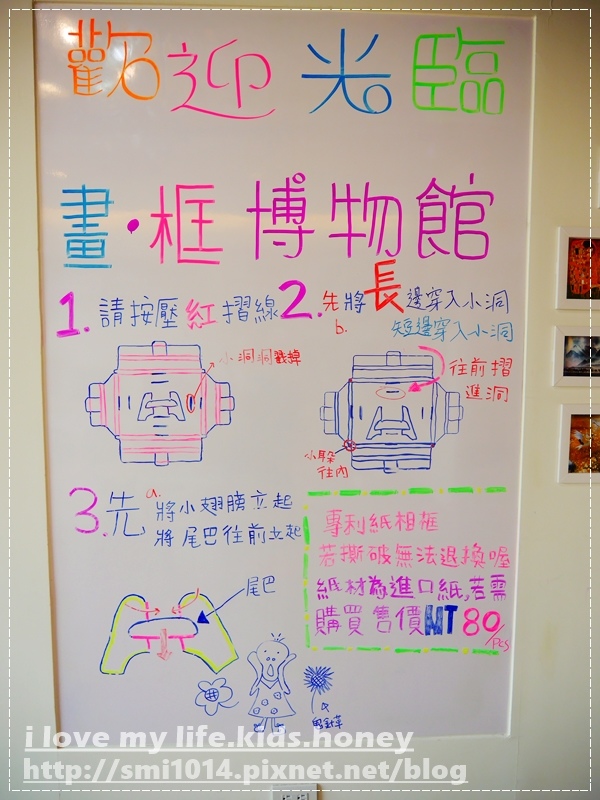 歡迎光臨
畫·框博物館
1. 請按壓紅摺線
小洞洞戳掉
2. 先將長邊穿入小洞
b. 短邊穿入小洞
往前摺
進洞
往內
3. 先 a. 將小翅膀立起
將尾巴往前立起
尾巴
專利紙相框
若撕破無法退換喔
紙材為進口紙,若需
購買 售價NT80/pcs
i love my life.kids.honey
http://smi1014.pixnet.net/blog